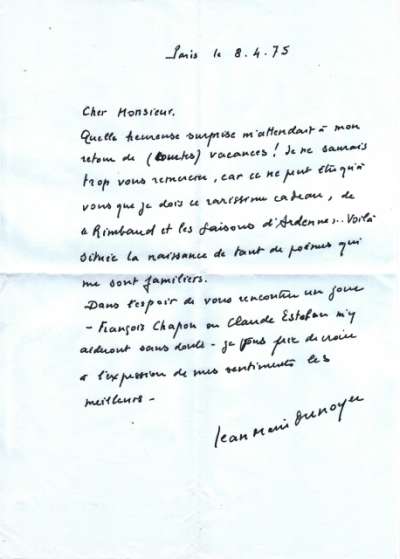 Paris le 8.4.75
Cher Monsieur.
Quelle heureuse surprise m'attendait à mon
retour de (courtes) vacances ! Je ne saurais
trop vous remercier, car ce ne peut être qu'à
vous que je dois ce rarissime cadeau, de
"Rimbaud et les saisons d'Ardenne".. Voilà
située la naissance de tant de poèmes qui
me sont familiers.
Dans l'espoir de vous rencontrer un jour
- François Chapon ou Claude Esteban m'y
aideront sans doute - je vous prie de croire
à l'expression de mes sentiments les
meilleurs -
Jean Marie Dunoyer